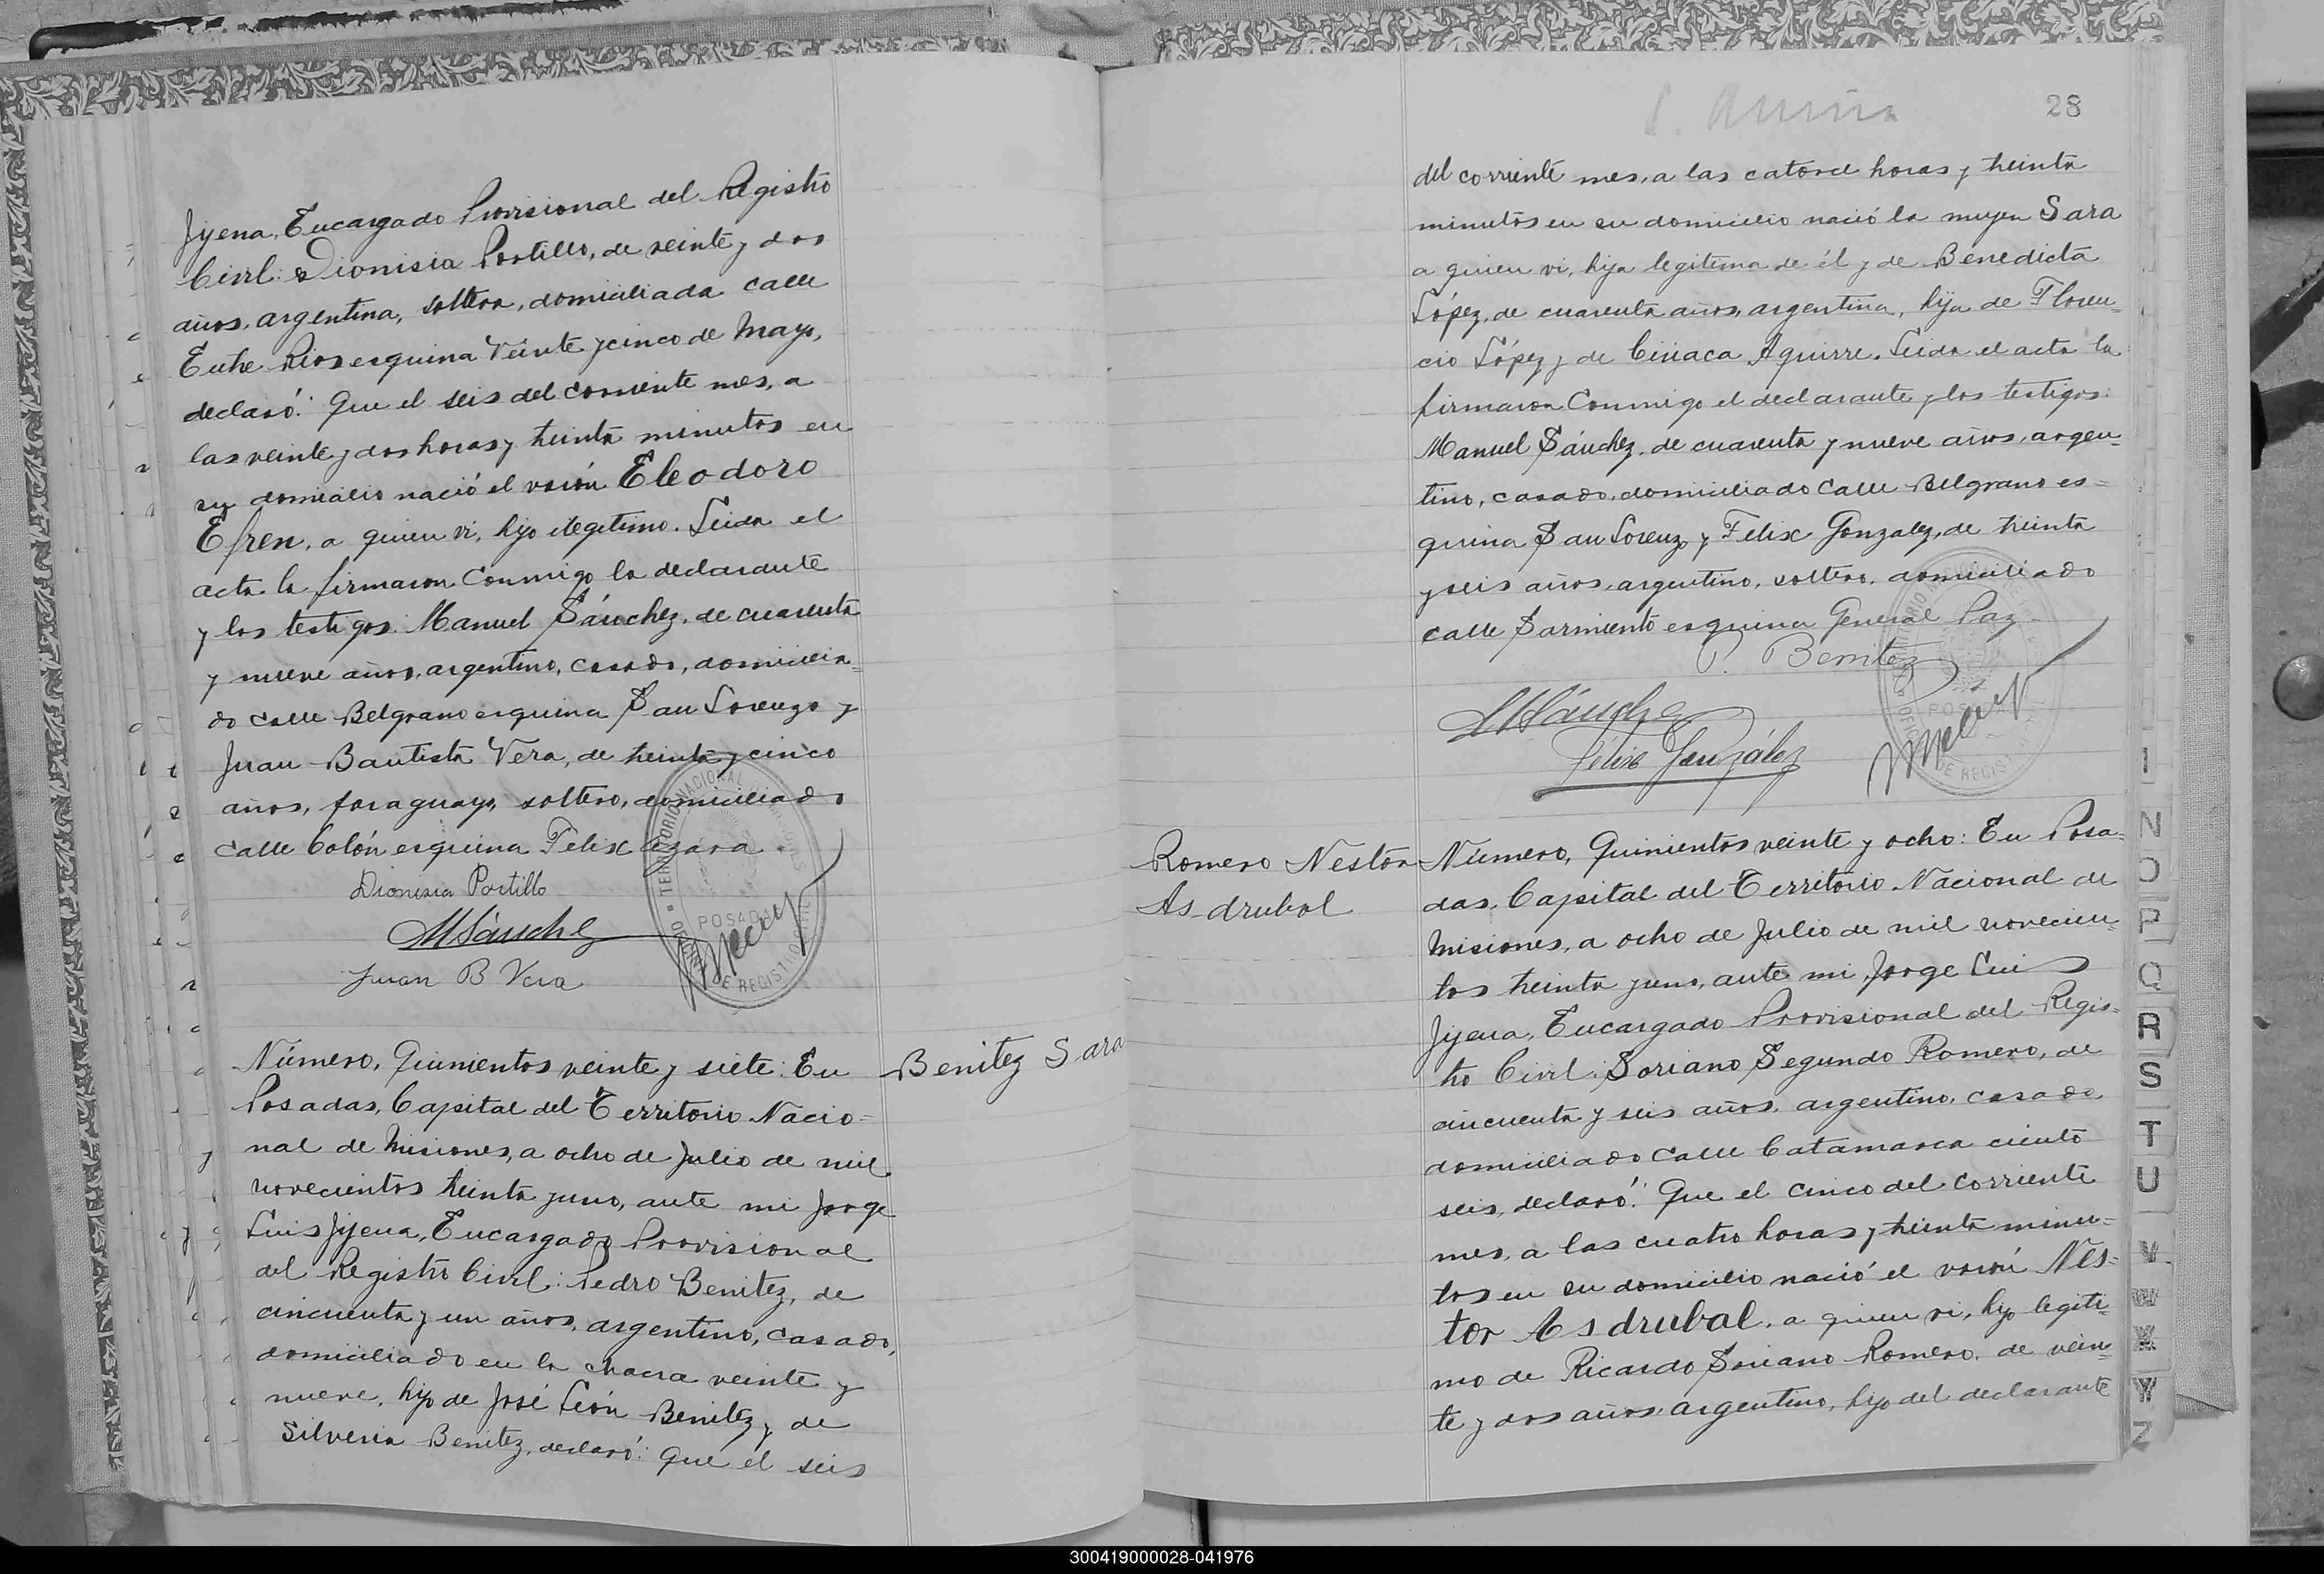 Jijena, Encargado Provisional del Registro
Civil: Dionisia Portillo, de veinte y dos
años, argentina, soltera, domiciliada calle
Entre Rios esquina Veinte y cinco de Mayo,
declaró: Que el seis del corriente mes, a
las veinte y dos horas y treinta minutos en
su domicilio nació el varón Eleodoro
Efren, a quien vi, hijo ilegitimo. Leida el
acta la firmaron conmigo la declarante
y los testigos: Manuel Sánchez, de cuarenta
y nueve años, argentino, casado, domicilia=
do calle Belgrano esquina San Lorenzo y
Juan Bautista Vera, de treinta y cinco
años, paraguayo, soltero, domiciliado
calle Colón esquina Felix Azara.
Dionisia Portillo
MSánchez
Juan B Vera
TERRITORIO NACIONAL
POSADAS
DE REGISTRO CIVIL
Número, Quinientos veinte y siete: En
Posadas, Capital del Territorio Nacio=
nal de Misiones, a ocho de Julio de mil
novecientos treinta y uno, ante mi Jorge
Luis Jijena, Encargado Provisional
del Registro Civil: Pedro Benitez, de
cincuenta y un años, argentino, casado,
domiciliado en la chacra veinte y
nueve, hijo de José León Benitez y de
Silveria Benitez, declaró: Que el seis
Benitez Sara
28
del corriente mes, a las catorce horas y treinta
minutos en su domicilio nació la mujer Sara
a quien vi, hija legitima de él y de Benedicta
López, de cuarenta años, argentina, hija de Floren=
cio López y de Ciriaca Aguirre. Leida el acta la
firmaron conmigo el declarante y los testigos:
Manuel Sánchez, de cuarenta y nueve años, argen=
tino, casado, domiciliado calle Belgrano es=
quina San Lorenzo y Felix Gonzalez, de treinta
y seis años, argentino, soltero, domiciliado
calle Sarmiento esquina General Paz.
P. Benitez
MSánchez
Félix González
Romero Nestor
Asdrubal
Número, Quinientos veinte y ocho: En Posa=
das, Capital del Territorio Nacional de
Misiones, a ocho de Julio de mil novecien=
tos treinta y uno, ante mi Jorge Luis
Jijena, Encargado Provisional del Regis=
tro Civil: Soriano Segundo Romero, de
cincuenta y seis años, argentino, casado,
domiciliado calle Catamarca ciento
seis, declaró: Que el cinco del corriente
mes, a las cuatro horas y treinta minu=
tos en su domicilio nació el varón Nes=
tor Asdrubal, a quien vi, hijo legiti=
mo de Ricardo Soriano Romero, de vein=
te y dos años, argentino, hijo del declarante
I
N
O
P
Q
R
S
T
U
V
W
X
Y
Z
300419000028-041976